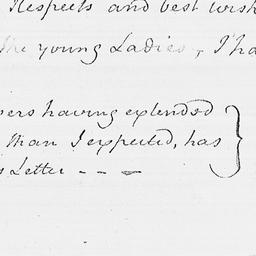 Respects and best wish
the young Ladies, I ha
pers having extended
than I expected, has
s Letter - - -